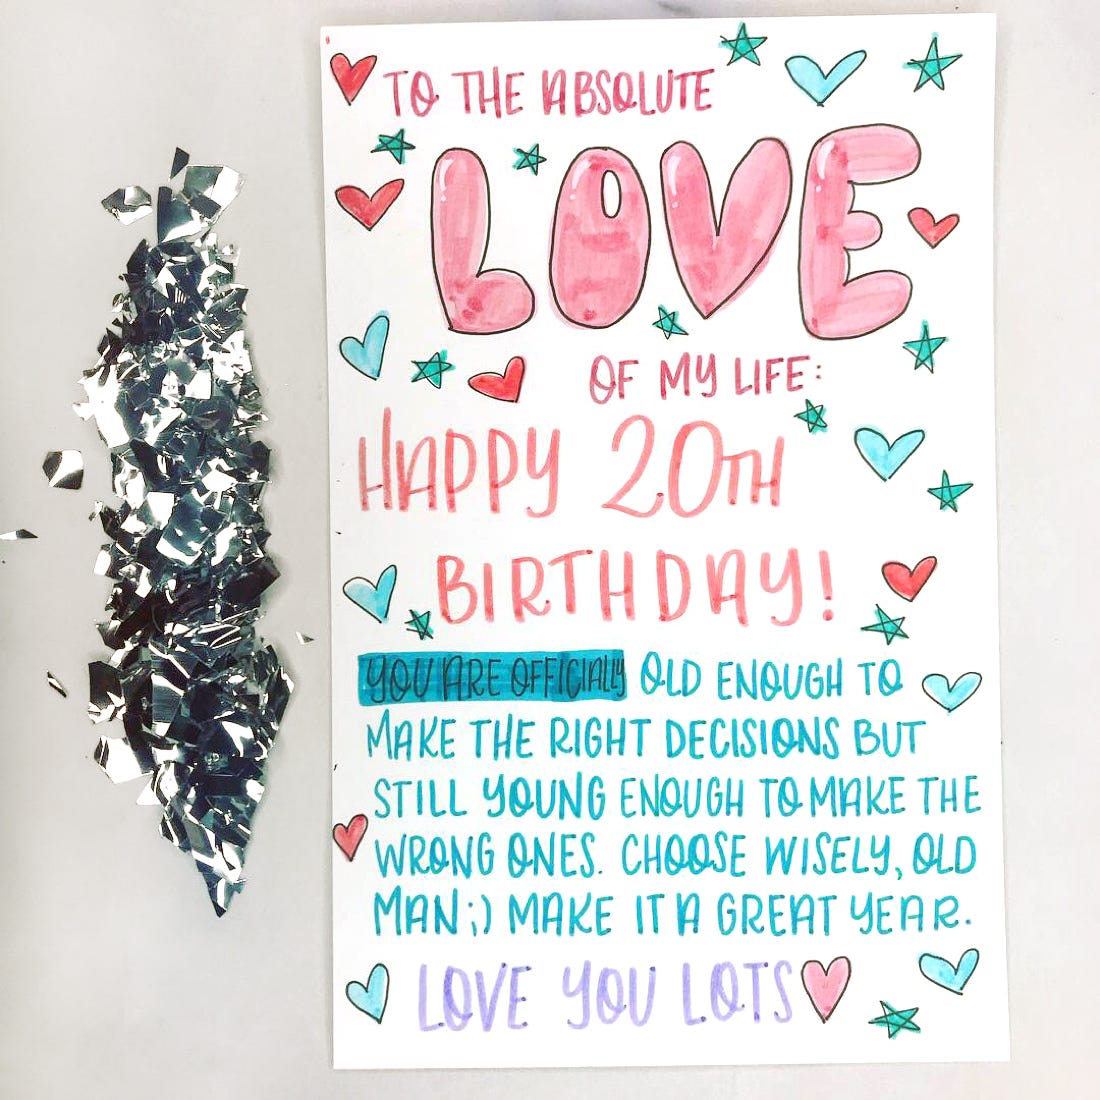 TO THE ABSOLUTE
LOVE
OF MY LIFE:
HAPPY 20TH
BIRTHDAY!
YOU ARE OFFICIALLY OLD ENOUGH TO
MAKE THE RIGHT DECISIONS BUT
STILL YOUNG ENOUGH TO MAKE THE
WRONG ONES. CHOOSE WISELY, OLD
MAN ;) MAKE IT A GREAT YEAR.
LOVE YOU LOTS